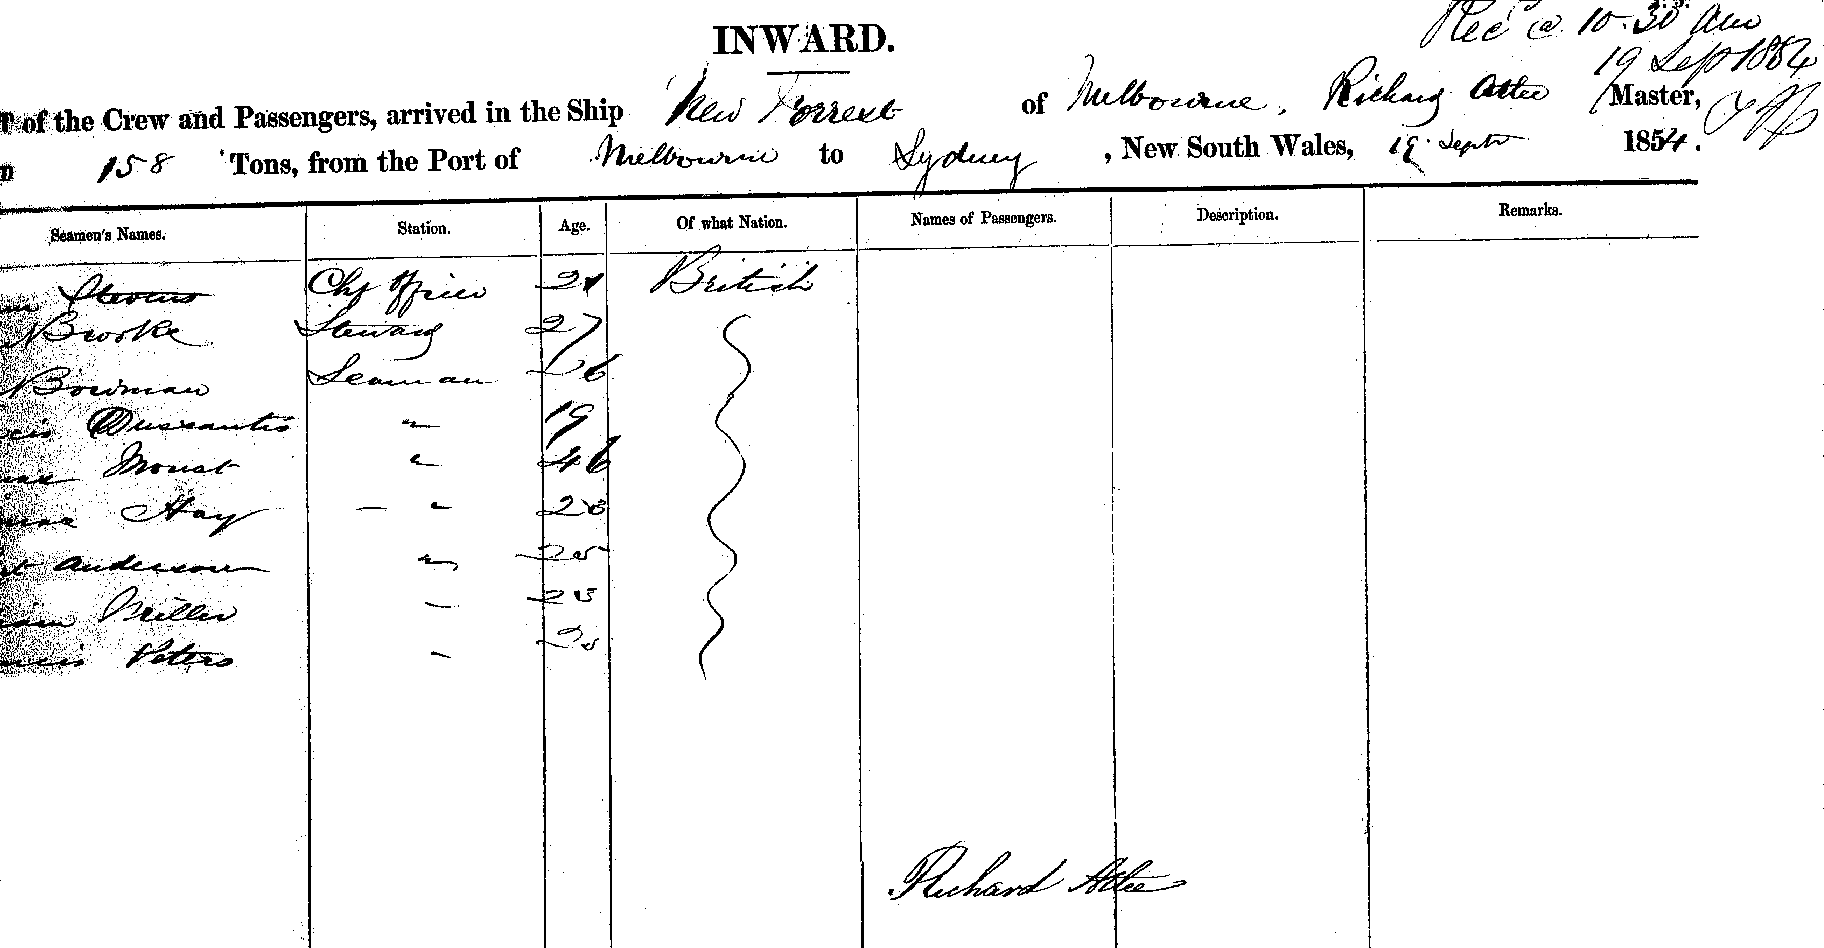 Rec^d @ 10.30 am
19 Sep 1854
INWARD.
of the Crew and Passengers, arrived in the Ship New Forrest of Melbourne, Richard Attee Master,
158 Tons, from the Port of Melbourne to Sydney, New South Wales, 19 Septr 1854.
Seamen's Names. Station. Age. Of what Nation. Names of Passengers. Description. Remarks.
Stevens Chf Officer 21 British
Brooke Steward 27
Bowman Seaman 26
" 19
Mouat " 46
Hay — " 23
Anderson " 25
Miller " 23
Peters " 25
Richard Attee